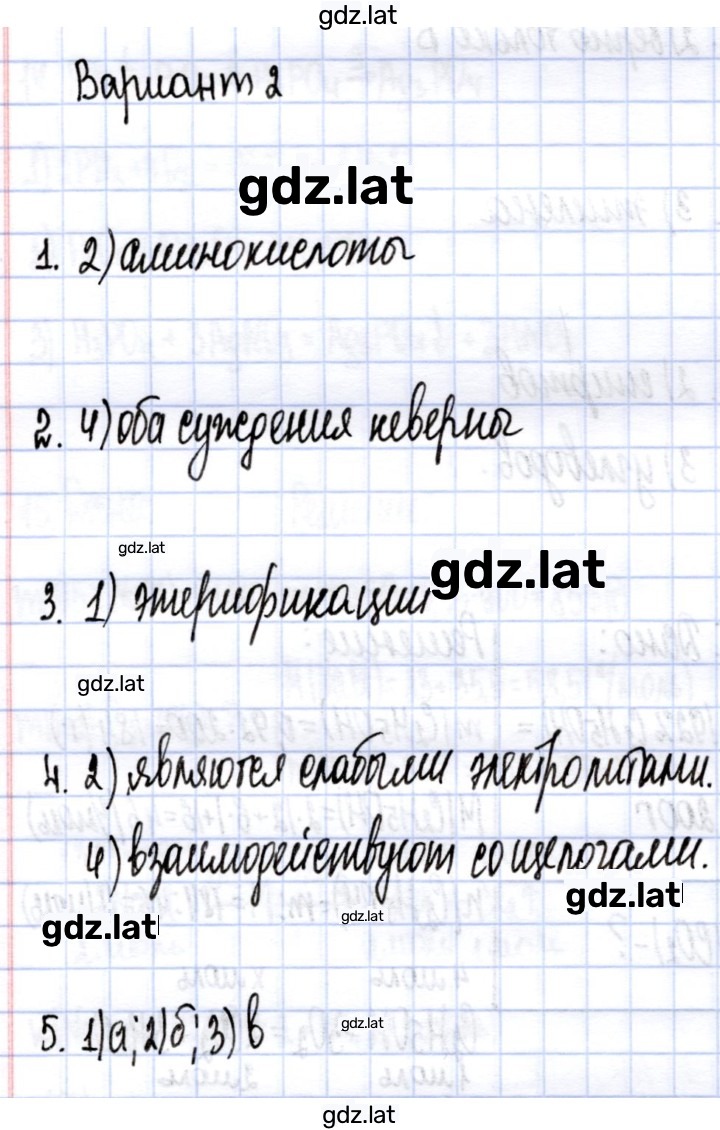 gdz.lat
Вариант 2
gdz.lat
1. 2) аминокислоты
2. 4) оба суждения неверны
gdz.lat
3. 1) этерификации
gdz.lat
gdz.lat
4. 2) являются слабыми электролитами.
4) взаимодействуют со щелочами.
gdz.lat
gdz.lat
gdz.lat
5. 1) а; 2) б; 3) в
gdz.lat
gdz.lat